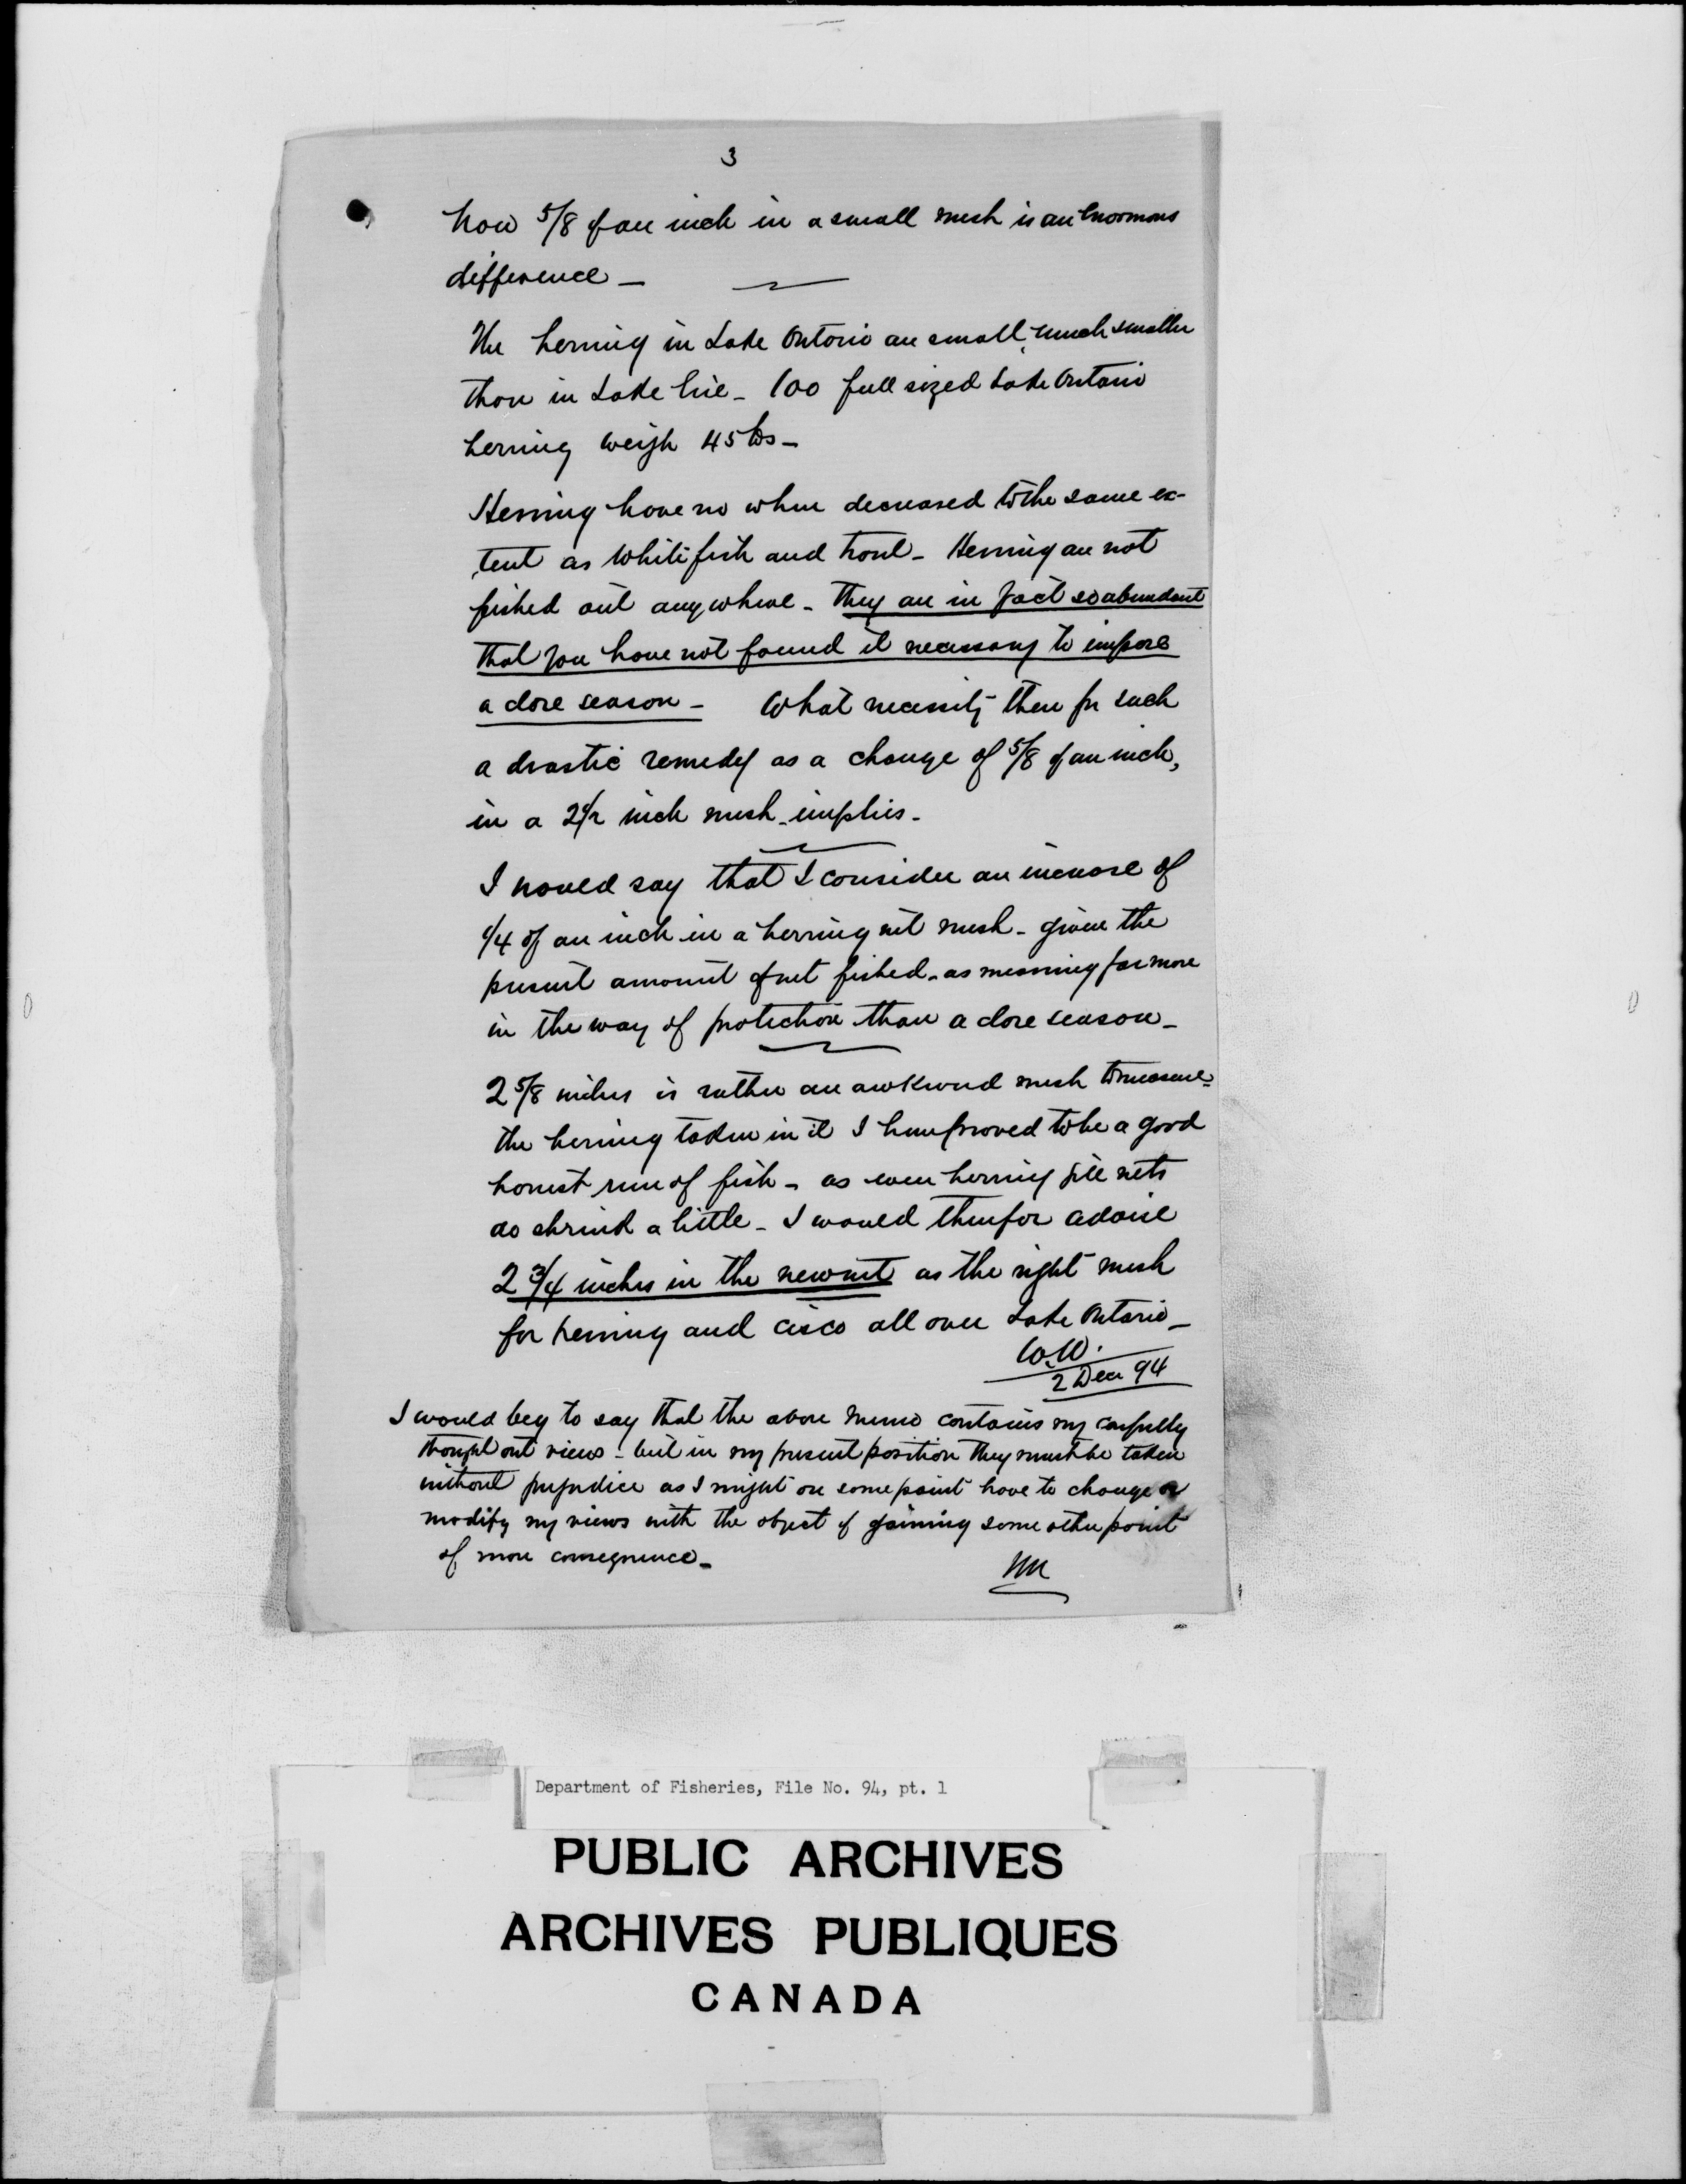 3
Now 5/8 of an inch in a small mesh is an enormous
difference —
The herring in Lake Ontario are small, much smaller
than in Lake Erie – 100 full sized Lake Ontario
herring weigh 45 lbs –
Herring have no where decreased to the same ex-
tent as Whitefish and trout – Herring are not
fished out anywhere – they are in fact so abundant
that you have not found it necessary to impose
a close season – What necessity then for such
a drastic remedy as a change of 5/8 of an inch,
in a 2 1/2 inch mesh – implies –
I would say that I consider an increase of
1/4 of an inch in a herring net mesh – given the
present amount of net fished – as meaning far more
in the way of protection than a close season –
2 5/8 inches is rather an awkward mesh to measure –
the herring taken in it I have proved to be a good
honest run of fish – as even herring gill nets
do shrink a little – I would therefor advise
2 3/4 inches in the new net as the right mesh
for herring and cisco all over Lake Ontario –
W.W.
2 Dec 94
I would beg to say that the above memo contains my carefully
thought out views – but in my present position they must be taken
without prejudice as I might on some point have to change or
modify my views with the object of gaining some other point
of more consequence –
Department of Fisheries, File No. 94, pt. 1
PUBLIC ARCHIVES
ARCHIVES PUBLIQUES
CANADA